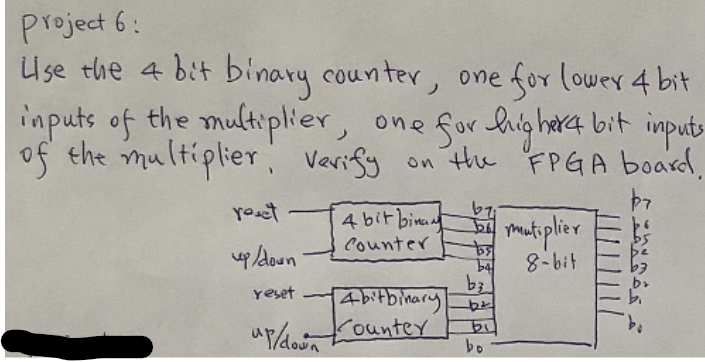 project 6:
Use the 4 bit binary counter, one for lower 4 bit
inputs of the multiplier, one for higher4 bit inputs
of the multiplier. Varify on the FPGA board.
reset
4 bit binary
counter
up/down
b7
b6
b5
b4
mutiplier
8-bit
b7
b6
b5
b4
b3
b2
b1
b0
reset
4bitbinary
counter
up/down
b3
b2
b1
b0